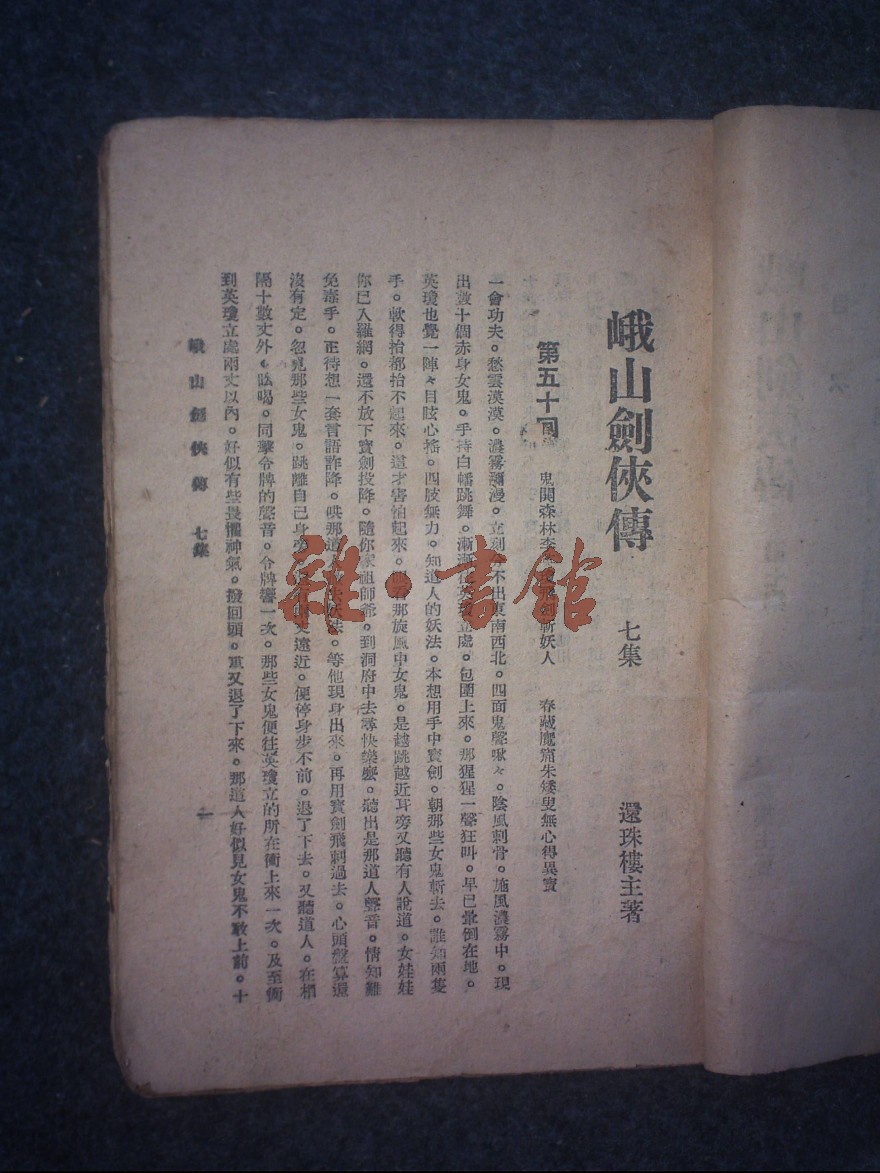 峨山劍俠傳
七集
還珠樓主著
第五十回
鬼鬧森林李 劍斬妖人
春藏魔窟朱矮叟無心得異寶
一會功夫。愁雲漠漠。濃霧瀰漫。立刻 不出東南西北。四面鬼聲啾々。陰風刺骨。旋風濃霧中。現
出數十個赤身女鬼。手持白幡跳舞。漸漸往英瓊立處。包圍上來。那猩猩一聲狂叫。早已暈倒在地。
英瓊也覺一陣々目眩心搖。四肢無力。知道人的妖法。本想用手中寶劍。朝那些女鬼斬去。誰知兩隻
手。軟得抬都抬不起來。這才害怕起來。 看那旋風中女鬼。是越跳越近耳旁又聽有人說道。女娃娃
你已入羅網。還不放下寶劍投降。隨你家祖師爺。到洞府中去尋快樂麽。聽出是那道人聲音。情知難
免毒手。正待想一套言語詐降。哄那道人 妖法。等他現身出來。再用寶劍飛刺過去。心頭盤算還
沒有定。忽見那些女鬼。跳離自己身旁 遠近。便停身步不前。退了下去。又聽道人。在相
隔十數丈外。陰喝。同擊令牌的聲音。令牌響一次。那些女鬼便往英瓊立的所在衝上來一次。及至衝
到英瓊立處兩丈以內。好似有些畏懼神氣。撥回頭。重又退了下來。那道人好似見女鬼不敢上前。十
峨山劍俠傳 七集
一
雜·書館